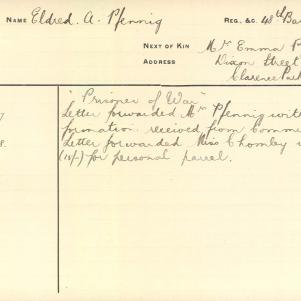 NAME Eldred. A. Pfennig REG. &c. 48th Ba
NEXT OF KIN Mrs Emma P
ADDRESS Dixon Street
Clarence Park
"Prisoner of War"
7 Letter forwarded Mrs Pfennig wit
formation received from Comm
8. Letter forwarded Miss Chomley
(10/-) for personal parcel.